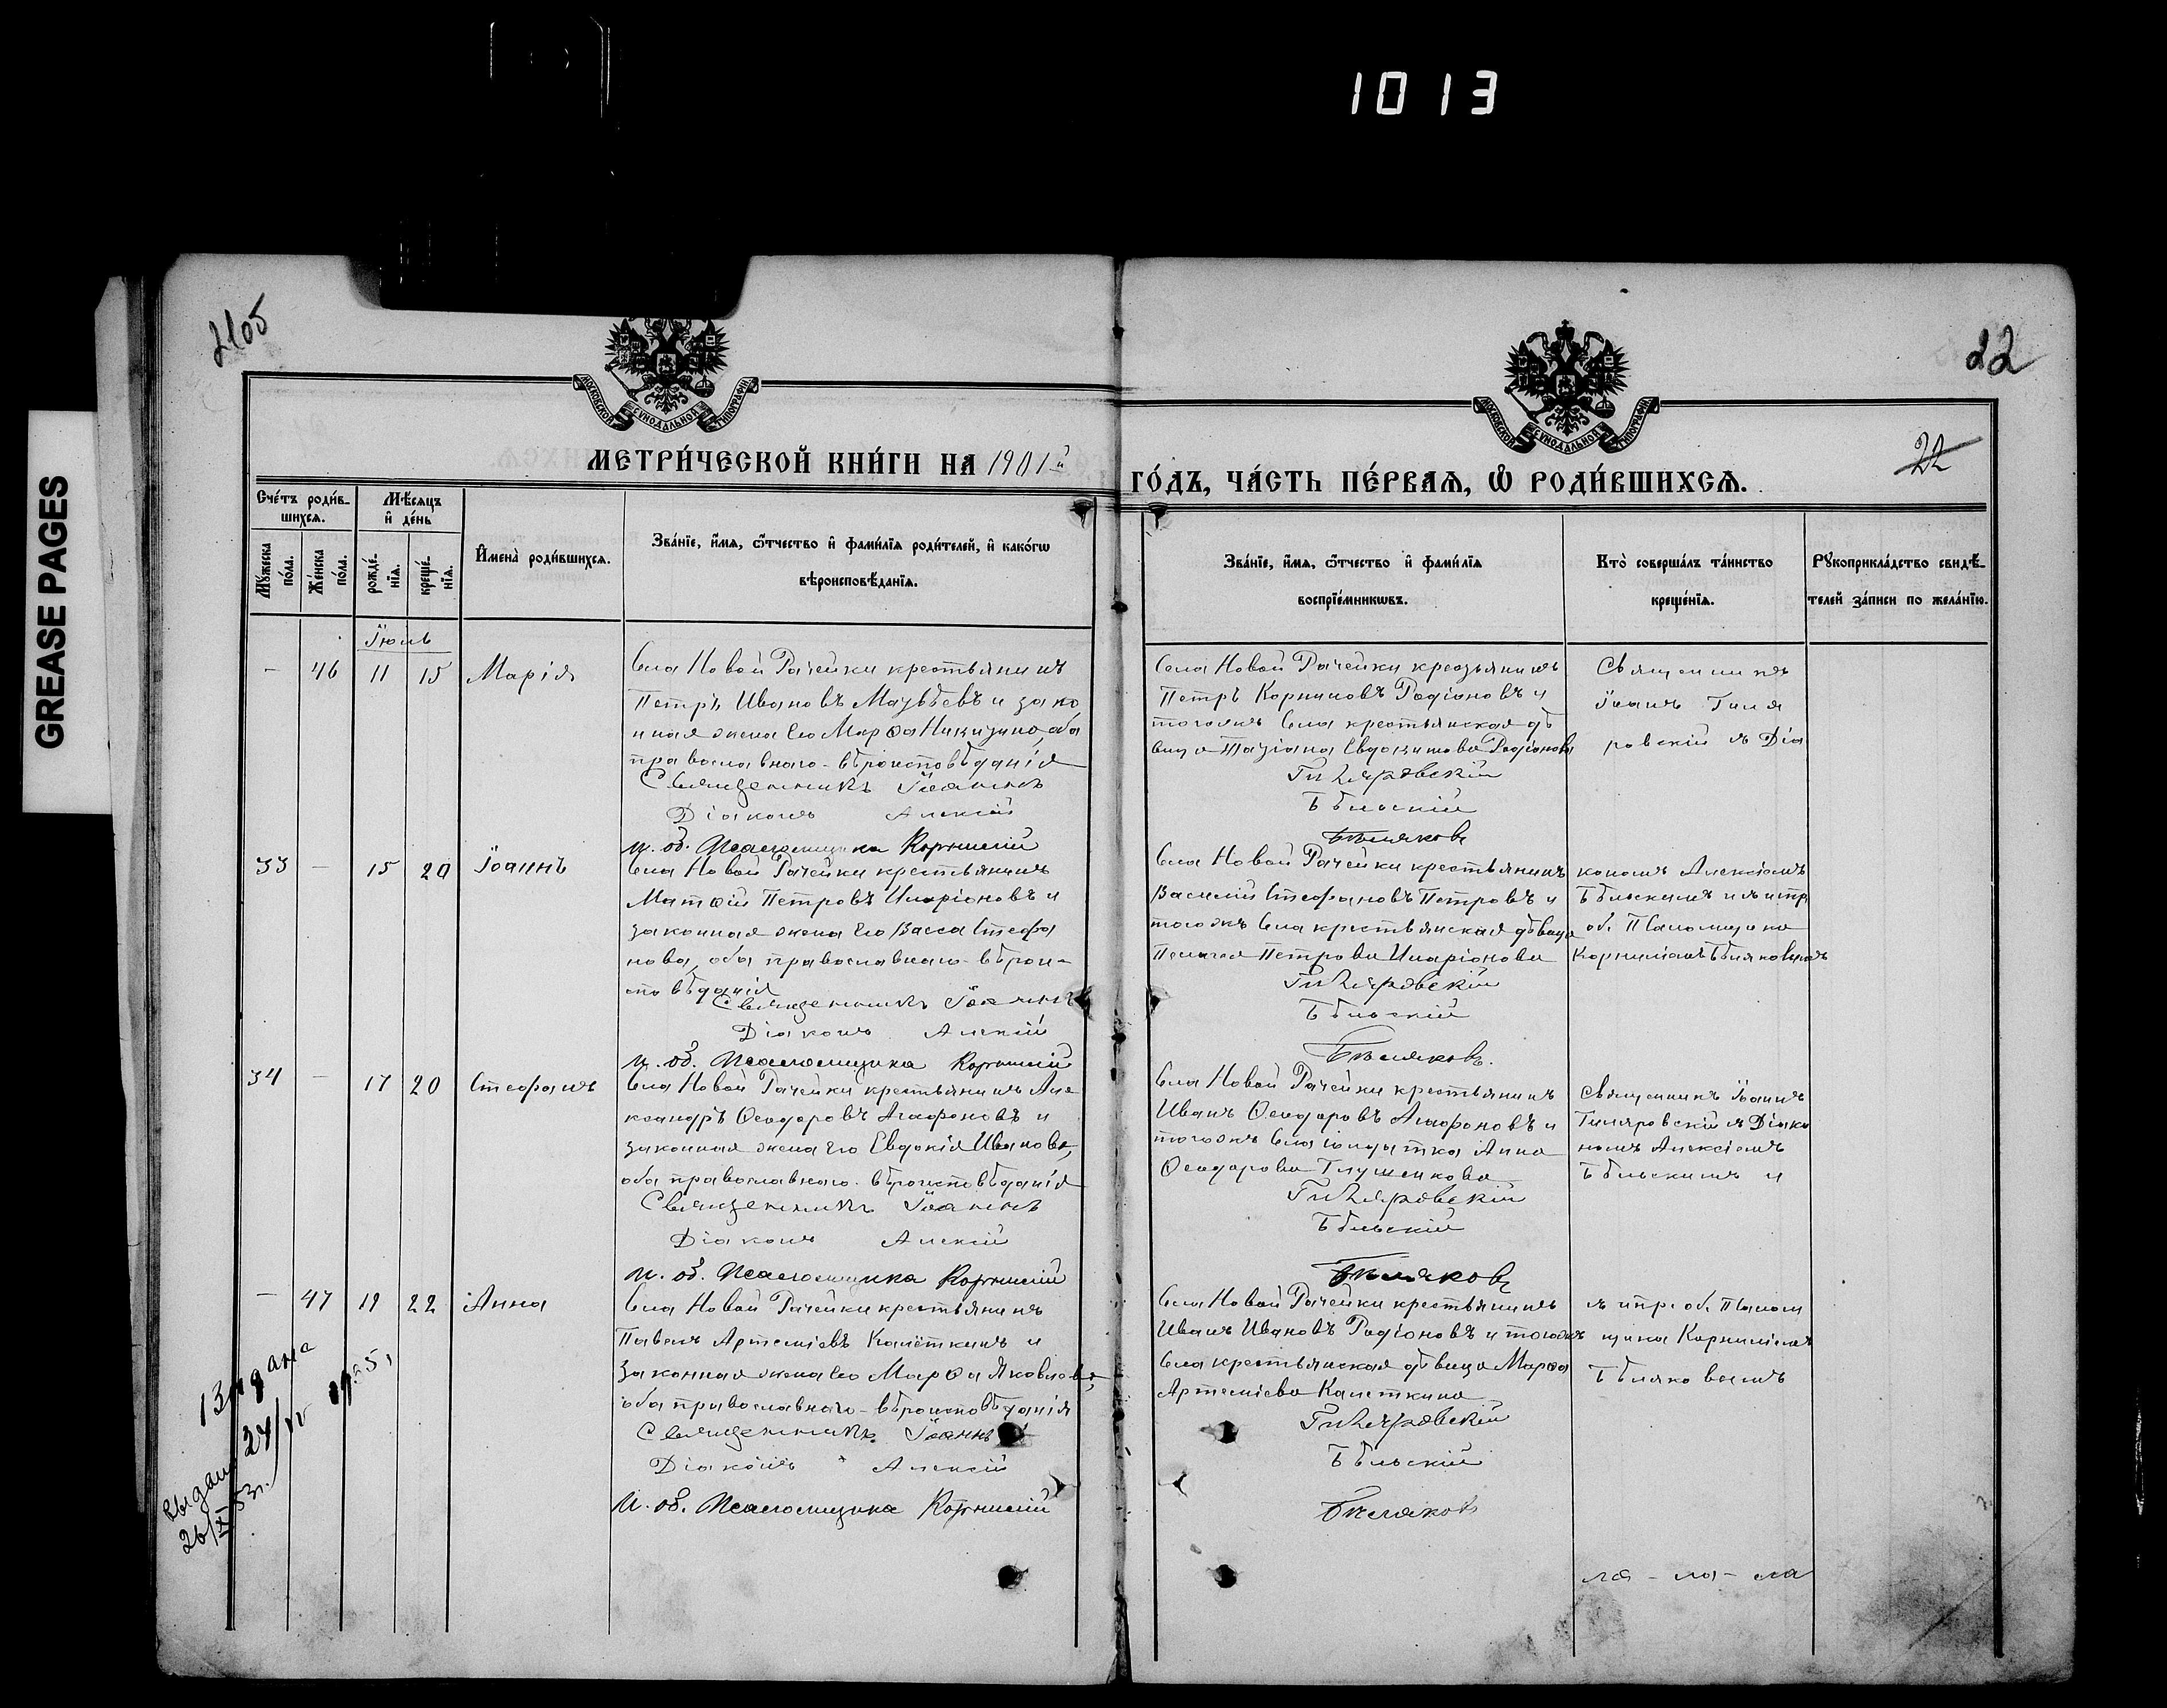 1013
GREASE PAGES
2105
22
22
МОСКОВСКОЙ СУНОДАЛЬНОЙ ТИПОГРАФІИ
МОСКОВСКОЙ СУНОДАЛЬНОЙ ТИПОГРАФІИ
МЕТРИ́ЧЕСКОЙ КНИ́ГИ НА 1901й
ГО́ДЪ, ЧА́СТЬ ПЕ́РВАѦ, Ѡ РОДИ́ВШИХСѦ.
Сче́тъ роди́в-
шихсѧ.
Мѣ́сѧцъ
и҆ де́нь
Мꙋ́жеска
по́ла.
Же́нска
по́ла.
рожде́-
нїѧ.
креще́-
нїѧ.
И҆мена̀ роди́вшихсѧ.
Зва́нїе, и҆́мѧ, ѻ҆́тчество и҆ фами́лїѧ роди́телей, и҆ како́гѡ
вѣроисповѣ́данїѧ.
Зва́нїе, и҆́мѧ, ѻ҆́тчество и҆ фами́лїѧ
воспрїе́мникѡвъ.
Кто̀ соверша́лъ та́инство
креще́нїѧ.
Рꙋкоприкла́дство свидѣ́-
телей за́писи по жела́нїю.
Іюль
- 46 11 15 Марія
Села Новой Рачейки крестьянинъ
Петръ Ивановъ Матвѣевъ и зако
нная жена его Марѳа Никитина, оба
православнаго вѣроисповѣданія
Священникъ Іоаннъ
Діаконъ Алексій
и. об. Псаломщика Корнилій
Села Новой Рачейки крестьянинъ
Петръ Корниловъ Родіоновъ и
тогожъ села крестьянская дѣ
вица Татіана Евдокимова Родіонова
Гиляровскій
Бѣльскій
Бѣляковъ
Священникъ
Іоаннъ Гиля
ровскій съ Діа
33 - 15 20 Іоаннъ
Села Новой Рачейки крестьянинъ
Матѳій Петровъ Иларіоновъ и
законная жена его Васса Стефа
нова, оба православнаго вѣрои-
сповѣданія
Священникъ Іоаннъ
Діаконъ Алексій
и. об. Псаломщика Корнилій
Села Новой Рачейки крестьянинъ
Василій Стефановъ Петровъ и
тогожъ села крестьянская дѣвица
Пелагея Петрова Иларіонова
Гиляровскій
Бѣльскій
Бѣляковъ.
кономъ Алексіемъ
Бѣльскимъ и и спр
об. Псаломщика
Корниліемъ Бѣляковымъ
34 - 17 20 Стефанъ
Села Новой Рачейки крестьянинъ Але
ксандръ Ѳеодоровъ Агафоновъ и
законная жена его Евдокія Иванова,
оба православнаго вѣроисповѣданія
Священникъ Іоаннъ
Діаконъ Алексій
и. об. Псаломщика Корнилій
Села Новой Рачейки крестьянинъ
Иванъ Ѳеодоровъ Агафоновъ и
тогожъ села солдатка Анна
Ѳеодорова Глушенкова
Гиляровскій
Бѣльскій
Бѣляковъ
Священникъ Іоаннъ
Гиляровскій съ Діако
номъ Алексіемъ
Бѣльскимъ и
- 47 19 22 Анна
Села Новой Рачейки крестьянинъ
Павелъ Артеміевъ Калёткинъ и
законная жена его Марѳа Яковлева,
оба православнаго вѣроисповѣданія
Священникъ Іоаннъ
Діаконъ Алексій
И. об. Псаломщика Корнилій
Села Новой Рачейки крестьянинъ
Иванъ Ивановъ Родіоновъ и тогожъ
села крестьянская дѣвица Марѳа
Артеміева Калеткина
Гиляровскій
Бѣльскій
Бѣляковъ
об. Псалом
щика Корниліемъ
Бѣляковымъ
24/IV 1955
26/IX 53г.